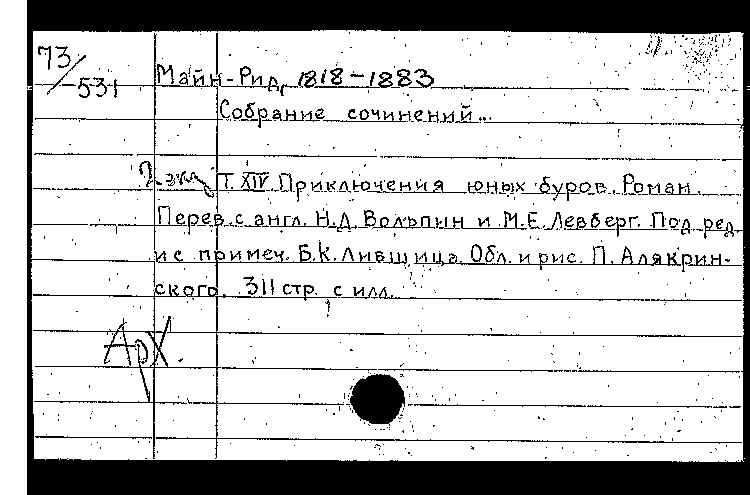 73/-531
Майн-Рид, 1818-1883
Собрание сочинений...
2 экз Т. XIV. Приключения юных буров. Роман.
Перев. с англ. Н.Д. Вольпин и М.Е. Левберг. Под ред.
и с примеч. Б.К. Лившица. Обл. и рис. П. Алякрин-
ского. 311 стр. с илл.
Арх.